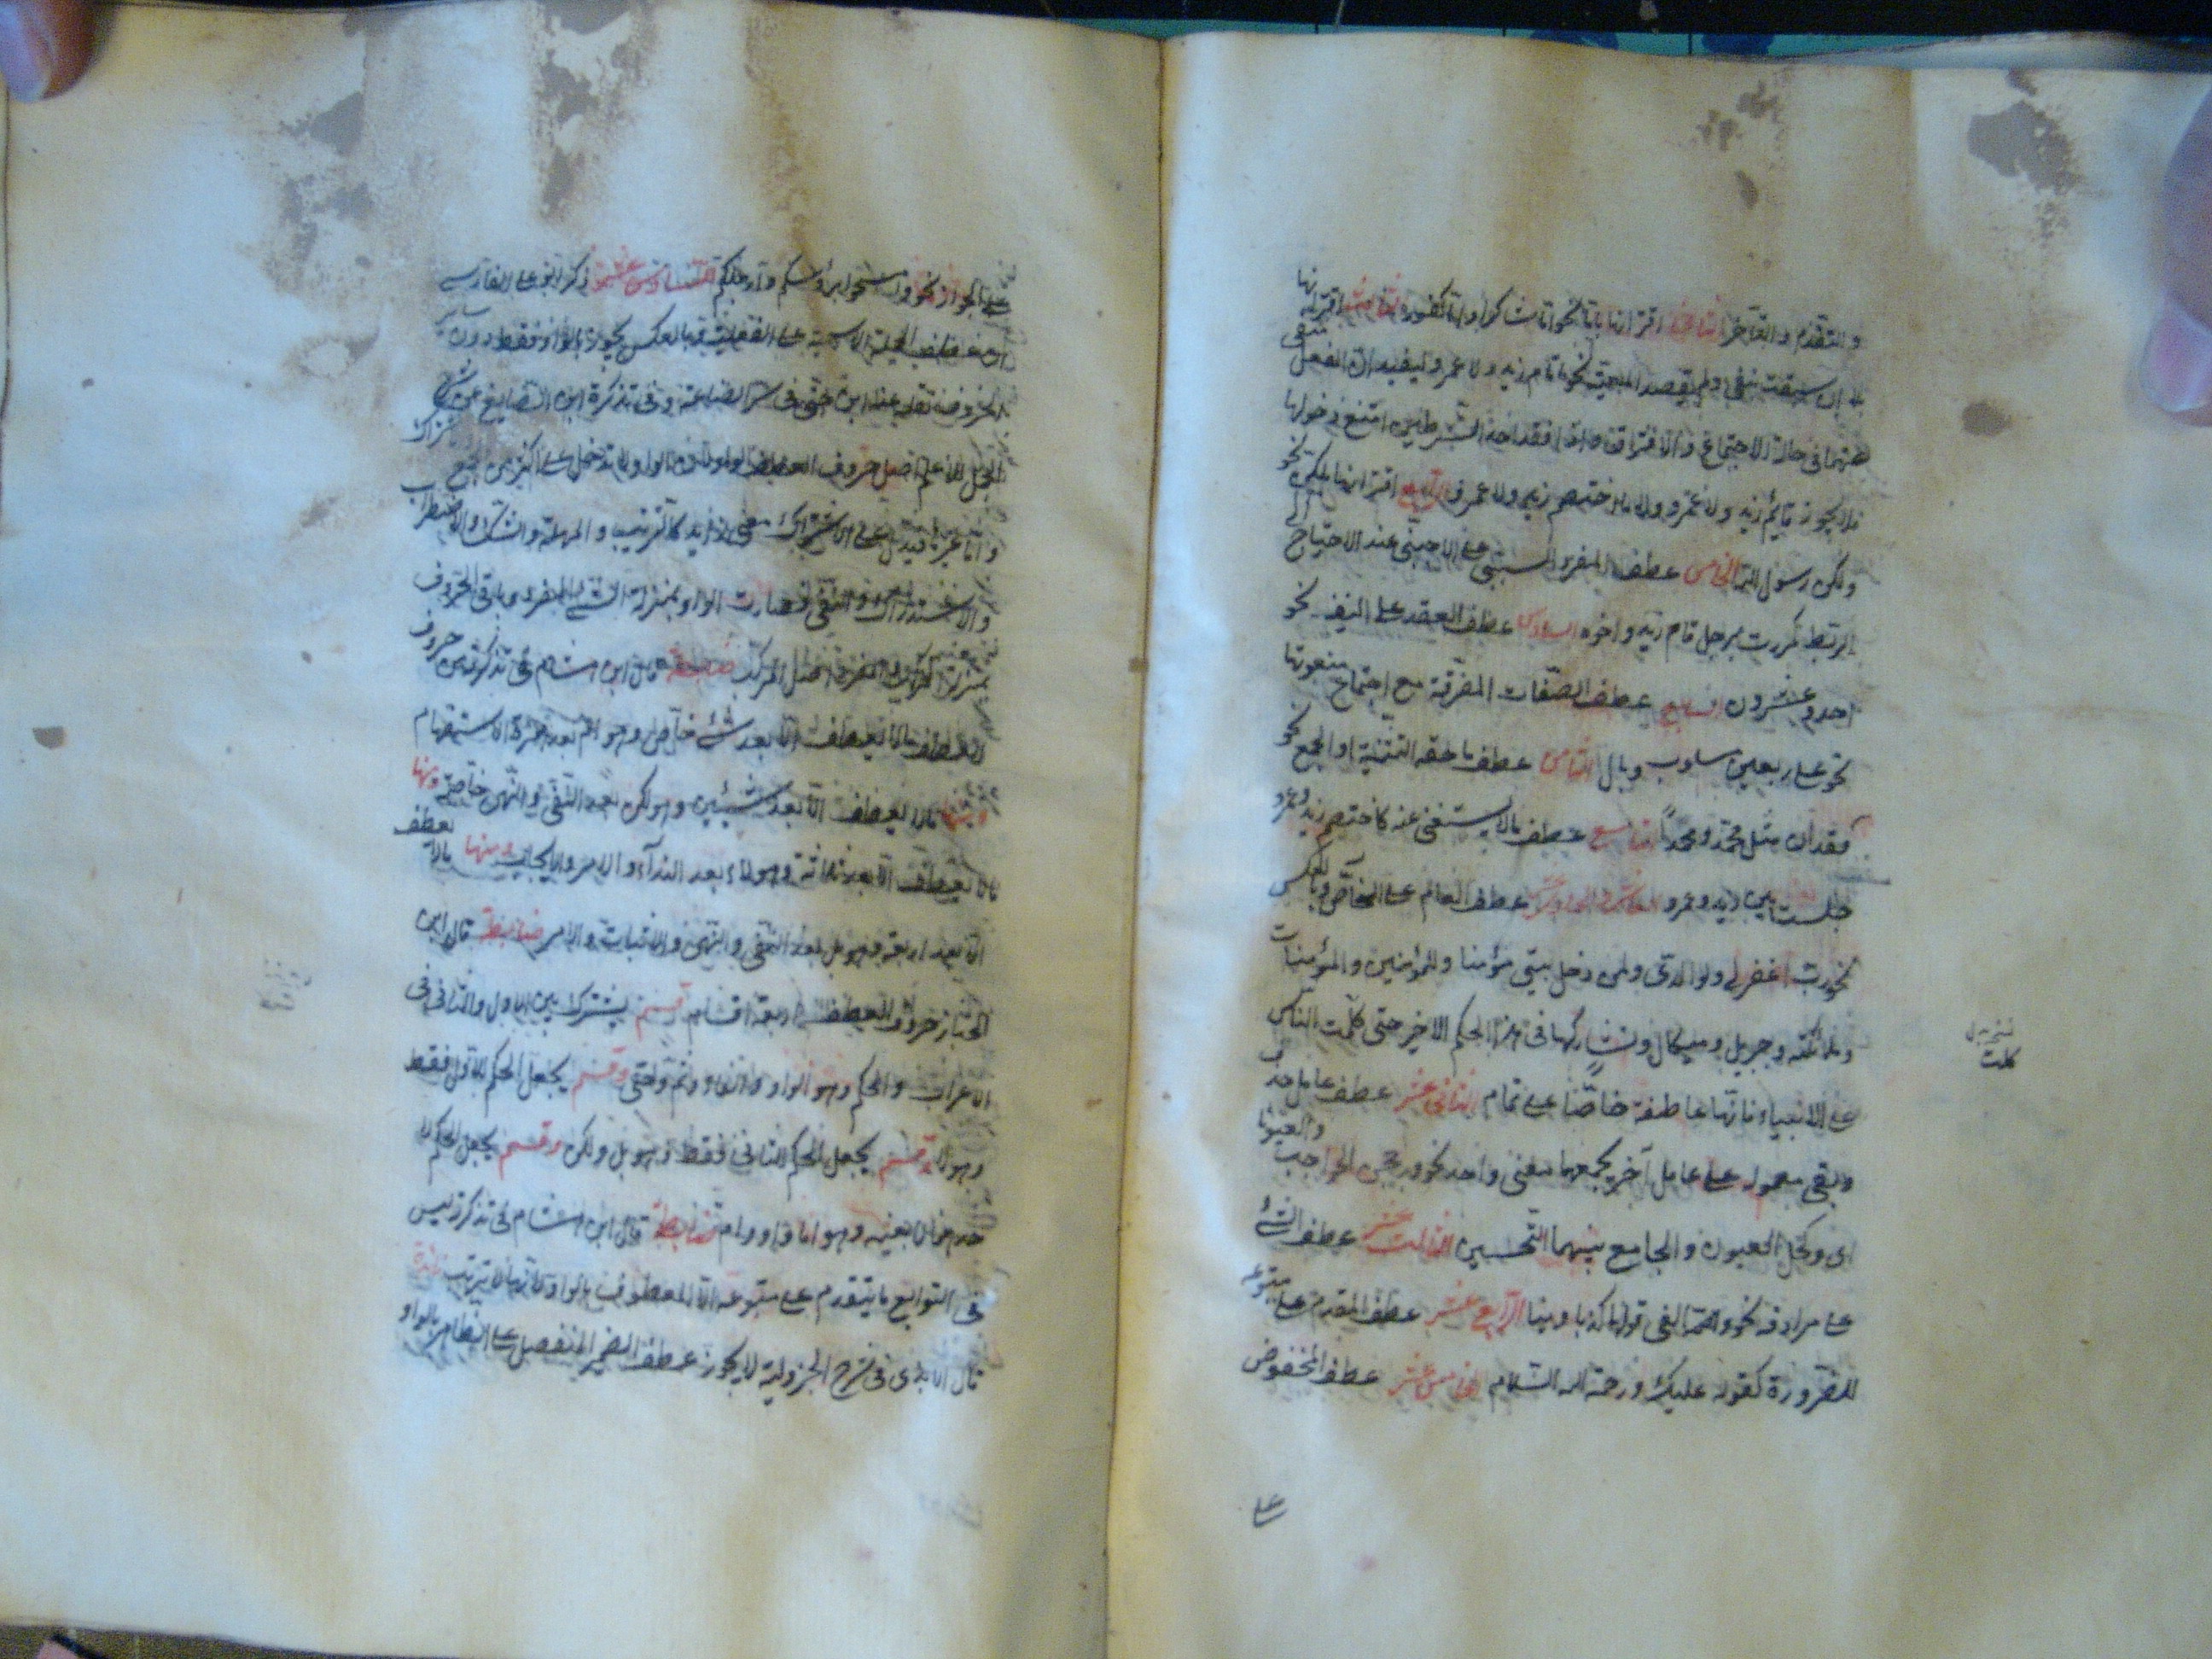 والتقدم والتأخر الثاني اقترانها باما نحو اما شاكرا واما كفورا الثالث اقترانها
بلا ان سبقت بنفي ولم يقصد المعية نحو ما قام زيد ولا عمرو ليفيد ان الفعل منفي
عنهما في حالة الاجتماع والافتراق واذا فقد احد الشرطين امتنع دخولها
فلا يجوز قائم زيد ولا عمرو ولا ما اختصم زيد ولا عمرو الرابع اقترانها بلكن نحو
ولكن رسول الله الخامس عطف المفرد السببي على الاجنبي عند الاحتياج الى
الربط كمررت برجل قام زيد واخوه السادس عطف العقد على النيف نحو
احد وعشرون السابع عطف الصفات المفرقة مع اجتماع منعوتها
نحو على ربعين مسلوب وبال الثامن عطف ما حقه التثنية او الجمع نحو
فقدان مثل محمد ومحمد التاسع عطف ما لا يستغنى عنه كاختصم زيد وعمرو
جلست بين زيد وعمرو العاشر والحادي عشر عطف العام على الخاص وبالعكس
نحو رب اغفر لي ولوالدي ولمن دخل بيتي مؤمنا وللمؤمنين والمؤمنات
وملائكته وجبريل وميكال وتشاركها في هذا الحكم الاخير حتى كلمت الناس
على الانبياء فانها عاطفة خاصا على تمام الثاني عشر عطف عامل حذف
وبقي معموله على عامل آخر يجمعهما معنى واحد نحو وزججن الحواجب والعيونا
اى وكحلن العيون والجامع بينهما التحسين الثالث عشر عطف الشئ
على مرادفه نحو والفى قولها كذبا ومينا الرابع عشر عطف المقدم على متبوعه
للضرورة كقوله عليك ورحمة الله السلام الخامس عشر عطف المخفوض
على
كلمت
على الجوار نحو وامسحوا برؤسكم وارجلكم السادس عشر ذكر ابو على الفارسي
ان عطف الجملة الاسمية على الفعلية وبالعكس يجوز بالواو فقط دون سائر
الحروف نقله عنه ابن جني في سر الصناعة وفي تذكرة ابن الصايغ عن شرح
الجمل للاعلم اصل حروف العطف الواو لان الواو لا تدل على اكثر من الاشتراك
واما غيرها فيدل على الاشتراك معنى زايد كالترتيب والمهلة والشك والاضراب
والاستدراك والنفي فصارت الواو بمنزلة الشئ المفرد وباقي الحروف
بمنزلة المركب والمفرد اصل المركب ضابطة قال ابن هشام في تذكرته من حروف
العطف ما لا يعطف الا بعد شئ خاص وهو ام بعد همزة الاستفهام
ومنها ما لا يعطف الا بعد شيئين وهو لكن بعد النفي والنهي خاصة ومنها
ما لا يعطف الا بعد ثلاثة وهو لا بعد النداء والامر والايجاب ومنها ما لا يعطف
الا بعد اربعة وهو بل بعد النفي والنهي والاثبات والامر ضابطة قال ابن
الخباز حروف العطف اربعة اقسام قسم يشترك بين الاول والثاني في
الاعراب والحكم وهو الواو والفاء وثم وحتى وقسم يجعل الحكم للاول فقط
وهو لا وقسم يجعل الحكم للثاني فقط وهو بل ولكن وقسم يجعل الحكم
لاحدهما لا بعينه وهو اما واو وام ضابطة قال ابن هشام في تذكرته ليس
في التوابع ما يتقدم على متبوعه الا المعطوف بالواو لانها لا ترتب فائدة
قال الابذي في شرح الجزولية لا يجوز عطف الضمير المنفصل على الظاهر بالواو